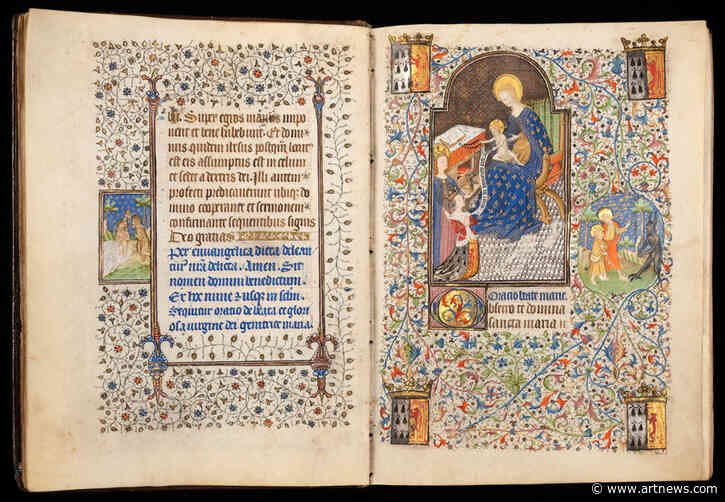 Super egros manus impo
nent et bene habebunt. Et domi
nus quidem ihesus postquam
est eis assumptus est in celum
et sedet a dextris dei. Illi autem
profecti predicaverunt ubique do
mino cooperante et sermonem
confirmante sequentibus signis
Deo gratias
Per euuangelica dicta delean
tur nrā delicta. Amen. Sit
nomen domini benedictum.
Et hoc nunc & usque in
Sequitur oratio de beata et glori
osa virgine dei genitrice maria.
Oratio beate marie.
Obsecro te domina
sancta maria
© www.artnews.com